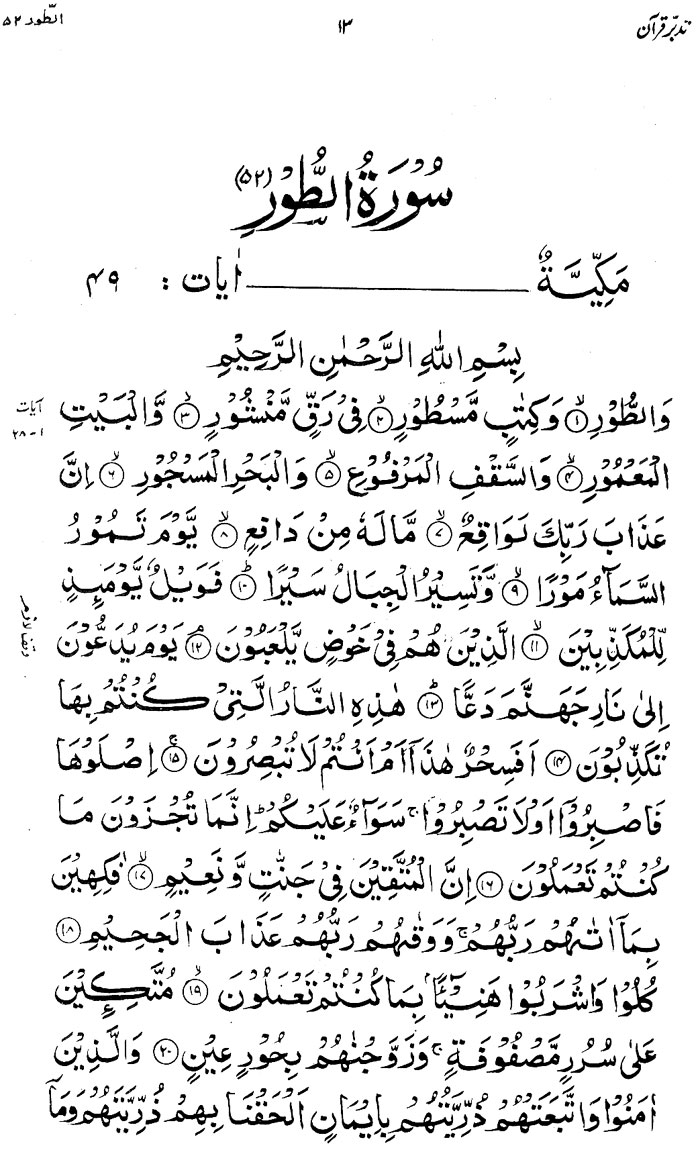 تدبّر قرآن ۱۳ الطّور ۵۲
سُوْرَةُ الطُّوْرِ (۵۲)
مَكِّيَّةٌ اٰيات : ۴۹
بِسْمِ اللهِ الرَّحْمٰنِ الرَّحِيْمِ
وَالطُّوْرِ ۱ وَكِتٰبٍ مَّسْطُوْرٍ ۲ فِيْ رَقٍّ مَّنْشُوْرٍ ۳ وَّالْبَيْتِ
آیات ۱-۲۸
الْمَعْمُوْرِ ۴ وَالسَّقْفِ الْمَرْفُوْعِ ۵ وَالْبَحْرِ الْمَسْجُوْرِ ۶ اِنَّ
عَذَابَ رَبِّكَ لَوَاقِعٌ ۷ مَّا لَهٗ مِنْ دَافِعٍ ۸ يَّوْمَ تَمُوْرُ
السَّمَآءُ مَوْرًا ۹ وَّتَسِيْرُ الْجِبَالُ سَيْرًا ۱۰ فَوَيْلٌ يَّوْمَئِذٍ
لِّلْمُكَذِّبِيْنَ ۱۱ الَّذِيْنَ هُمْ فِيْ خَوْضٍ يَّلْعَبُوْنَ ۱۲ يَوْمَ يُدَعُّوْنَ
اِلٰى نَارِ جَهَنَّمَ دَعًّا ۱۳ هٰذِهِ النَّارُ الَّتِيْ كُنْتُمْ بِهَا
تُكَذِّبُوْنَ ۱۴ اَفَسِحْرٌ هٰذَآ اَمْ اَنْتُمْ لَا تُبْصِرُوْنَ ۱۵ اِصْلَوْهَا
فَاصْبِرُوْٓا اَوْ لَا تَصْبِرُوْا ۚ سَوَآءٌ عَلَيْكُمْ ؕ اِنَّمَا تُجْزَوْنَ مَا
كُنْتُمْ تَعْمَلُوْنَ ۱۶ اِنَّ الْمُتَّقِيْنَ فِيْ جَنّٰتٍ وَّنَعِيْمٍ ۱۷ فٰكِهِيْنَ
بِمَآ اٰتٰىهُمْ رَبُّهُمْ ۚ وَوَقٰىهُمْ رَبُّهُمْ عَذَابَ الْجَحِيْمِ ۱۸
كُلُوْا وَاشْرَبُوْا هَنِيْٓئًاۢ بِمَا كُنْتُمْ تَعْمَلُوْنَ ۱۹ مُتَّكِـِٕيْنَ
عَلٰى سُرُرٍ مَّصْفُوْفَةٍ ۚ وَزَوَّجْنٰهُمْ بِحُوْرٍ عِيْنٍ ۲۰ وَالَّذِيْنَ
اٰمَنُوْا وَاتَّبَعَتْهُمْ ذُرِّيَّتُهُمْ بِاِيْمَانٍ اَلْحَقْنَا بِهِمْ ذُرِّيَّتَهُمْ وَمَآ